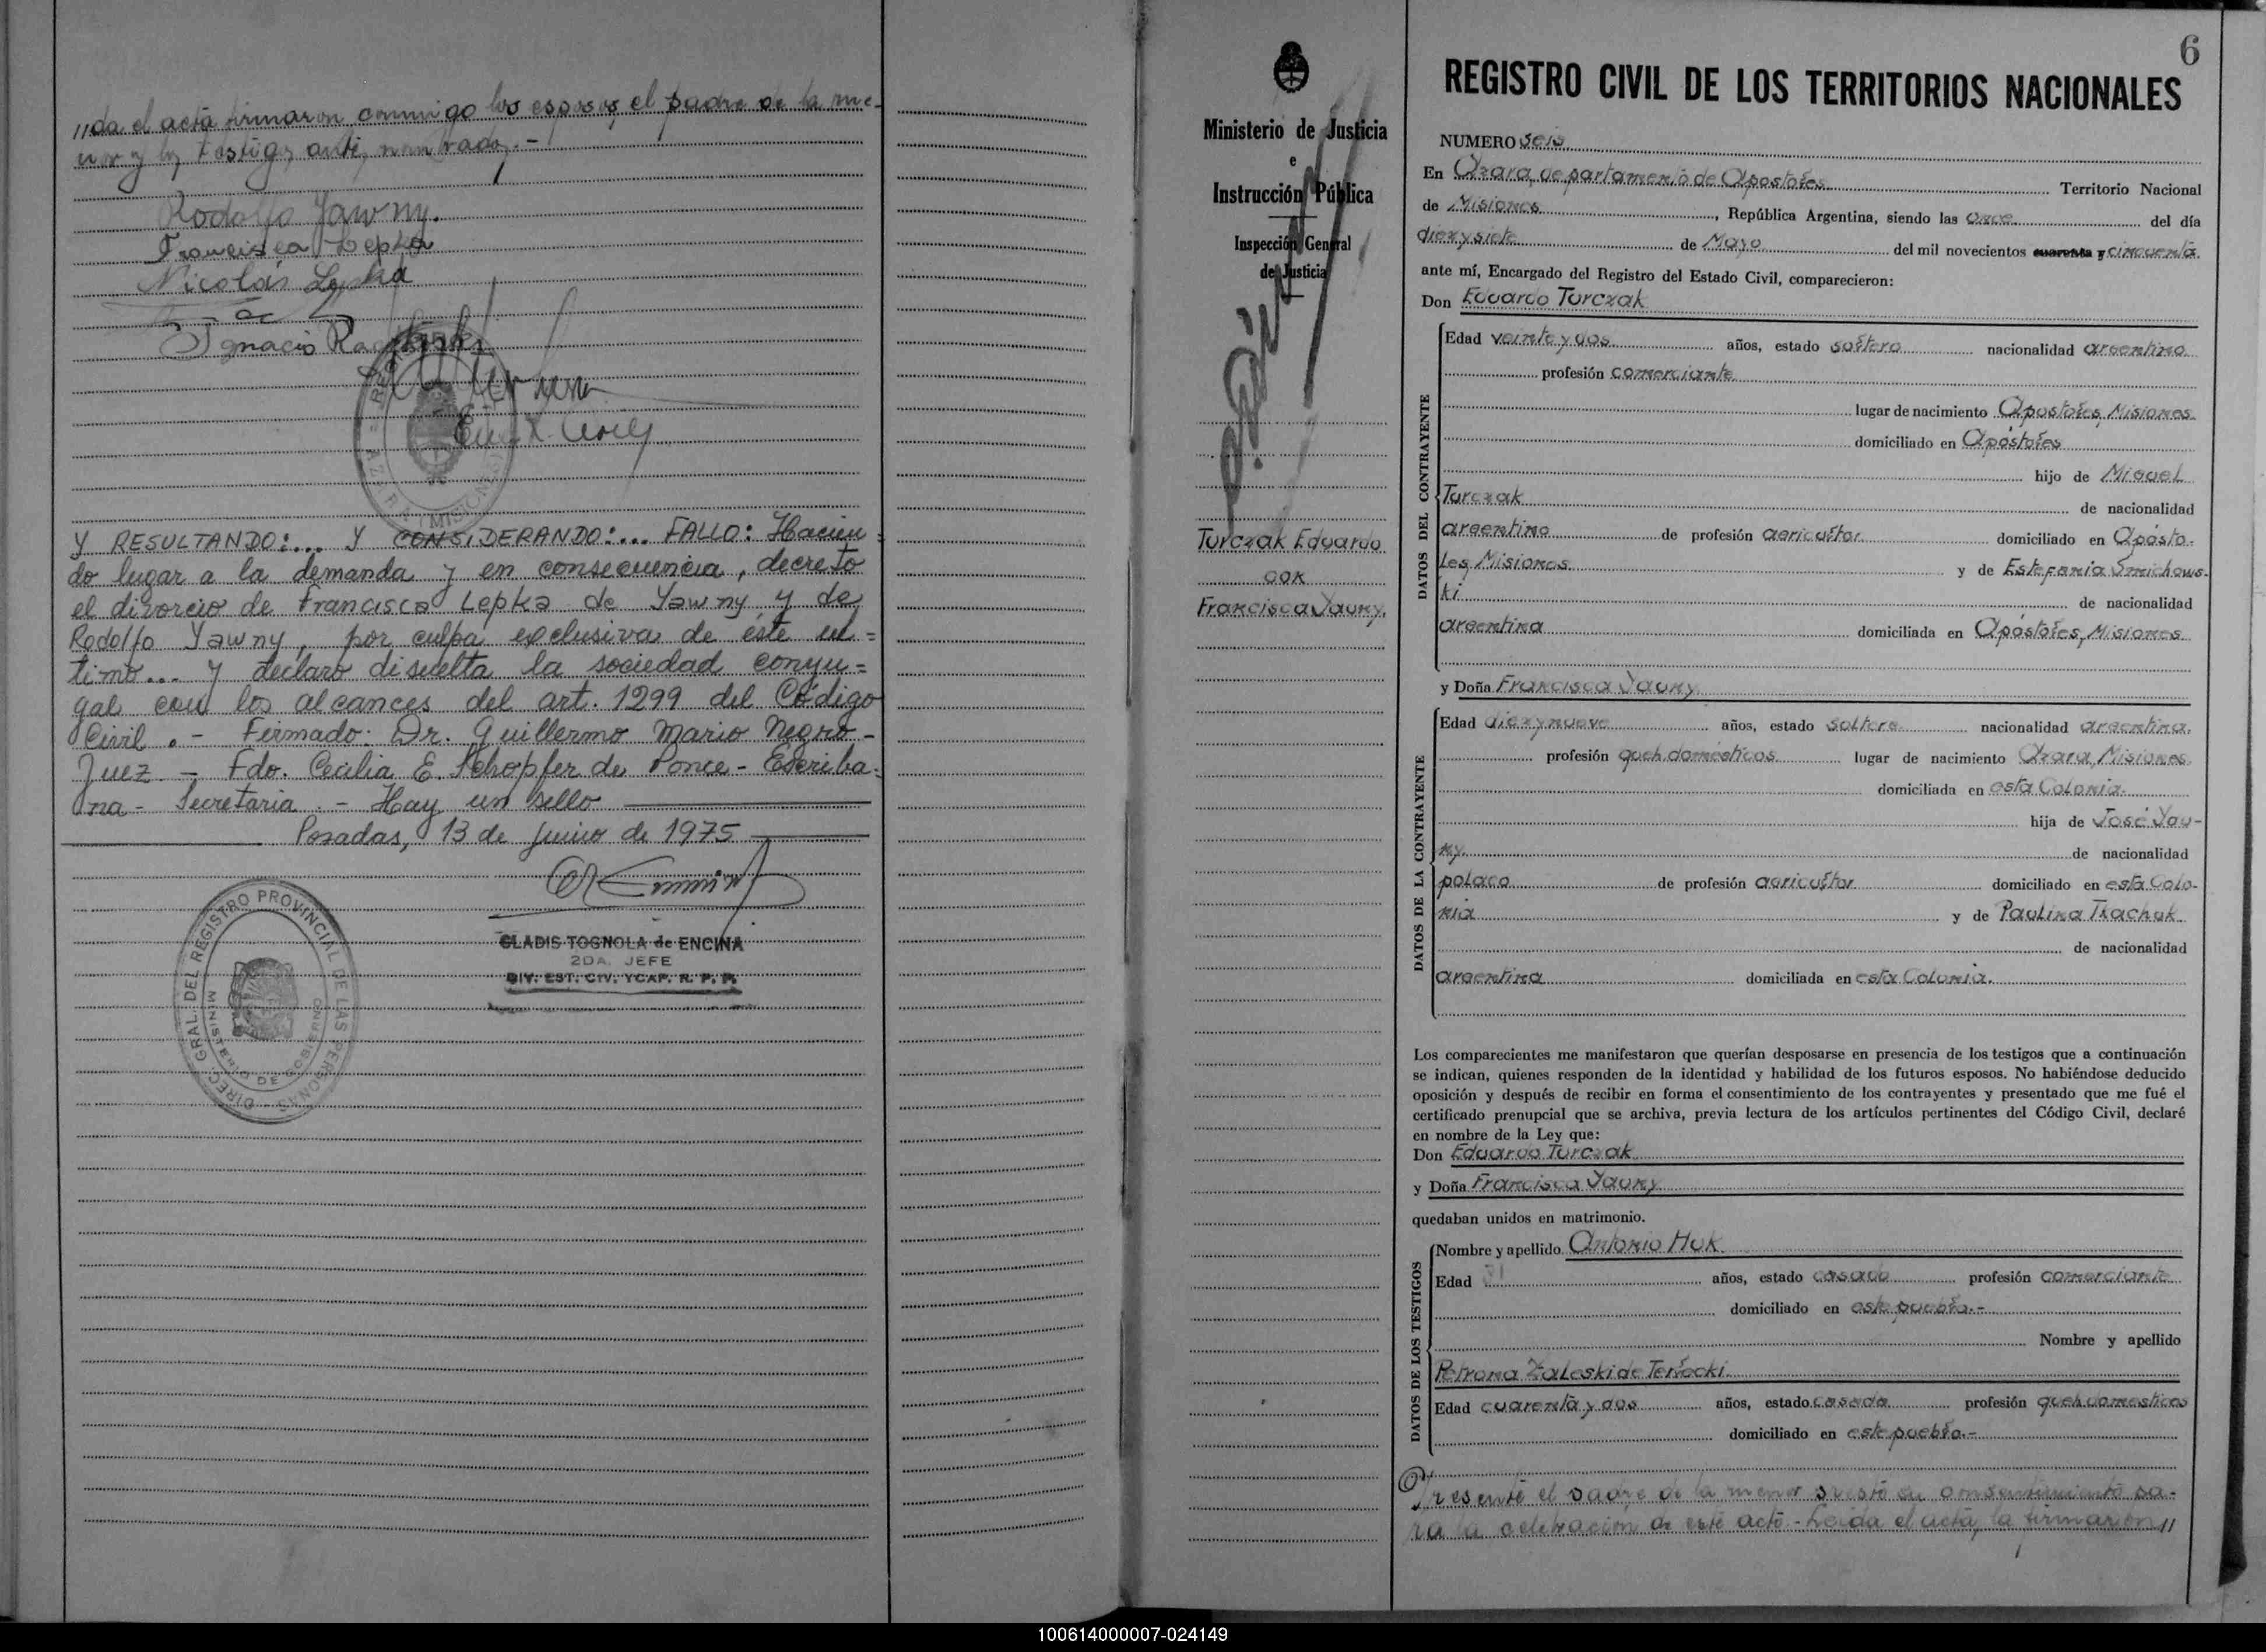 //da el acta firmaron conmigo los esposos el padre de la me-
nor y los testigos antes nombrados.-
Rodolfo Yawny.
Francisca Lepka
Nicolás Lepka
Ignacio
Y RESULTANDO:... Y CONSIDERANDO:... FALLO: Hacien=
do lugar a la demanda y en consecuencia, decreto
el divorcio de Francisca Lepka de Yawny y de
Rodolfo Yawny, por culpa exclusiva de éste úl=
timo... y declaro disuelta la sociedad conyu=
gal con los alcances del art. 1299 del Código
Civil.- Firmado: Dr. Guillermo Mario Negro-
Juez.- Fdo. Cecilia E. Schopfer de Ponce- Escriba=
na- Secretaria.- Hay un sello
Posadas, 13 de junio de 1975
GLADIS TOGNOLA de ENCINA
2DA. JEFE
DIV. EST. CIV. YCAP. R. P. P.
DIRECC. GRAL. DEL REGISTRO PROVINCIAL DE LAS PERSONAS
MINISTERIO DE GOBIERNO
6
Ministerio de Justicia
e
Instrucción Pública
Inspección General
de Justicia
Turczak Eduardo
con
Francisca Yauny.
REGISTRO CIVIL DE LOS TERRITORIOS NACIONALES
NUMERO seis
En Azara, departamento de Apostoles Territorio Nacional
de Misiones, República Argentina, siendo las once del día
diezysiete de Mayo del mil novecientos cuarenta y cincuenta.
ante mí, Encargado del Registro del Estado Civil, comparecieron:
Don Eduardo Turczak
DATOS DEL CONTRAYENTE
Edad veinte y dos años, estado soltero nacionalidad argentino
profesión comerciante
lugar de nacimiento Apostoles, Misiones
domiciliado en Apóstoles
hijo de Miguel
Turczak de nacionalidad
argentino de profesión agricultor domiciliado en Apósto-
les, Misiones y de Estefania Smichows-
ki de nacionalidad
argentina domiciliada en Apóstoles, Misiones
y Doña Francisca Yauny
DATOS DE LA CONTRAYENTE
Edad diezynueve años, estado soltera nacionalidad argentina.
profesión queh. domésticos lugar de nacimiento Azara, Misiones
domiciliada en esta Colonia.
hija de José Yau-
ny. de nacionalidad
polaco de profesión agricultor domiciliado en esta Colo-
nia y de Paulina Tkachuk
de nacionalidad
argentina domiciliada en esta Colonia.
Los comparecientes me manifestaron que querían desposarse en presencia de los testigos que a continuación
se indican, quienes responden de la identidad y habilidad de los futuros esposos. No habiéndose deducido
oposición y después de recibir en forma el consentimiento de los contrayentes y presentado que me fué el
certificado prenupcial que se archiva, previa lectura de los artículos pertinentes del Código Civil, declaré
en nombre de la Ley que:
Don Eduardo Turczak
y Doña Francisca Yauny
quedaban unidos en matrimonio.
DATOS DE LOS TESTIGOS
Nombre y apellido Antonio Huk
Edad 31 años, estado casado profesión comerciante
domiciliado en este pueblo.-
Nombre y apellido
Petrona Zaleski de Terlecki
Edad cuarenta y dos años, estado casada profesión queh. domesticos
domiciliado en este pueblo.-
Presente el padre de la menor presto su consentimiento pa-
ra la celebracion de este acto.- Leida el acta, la firmaron//
100614000007-024149